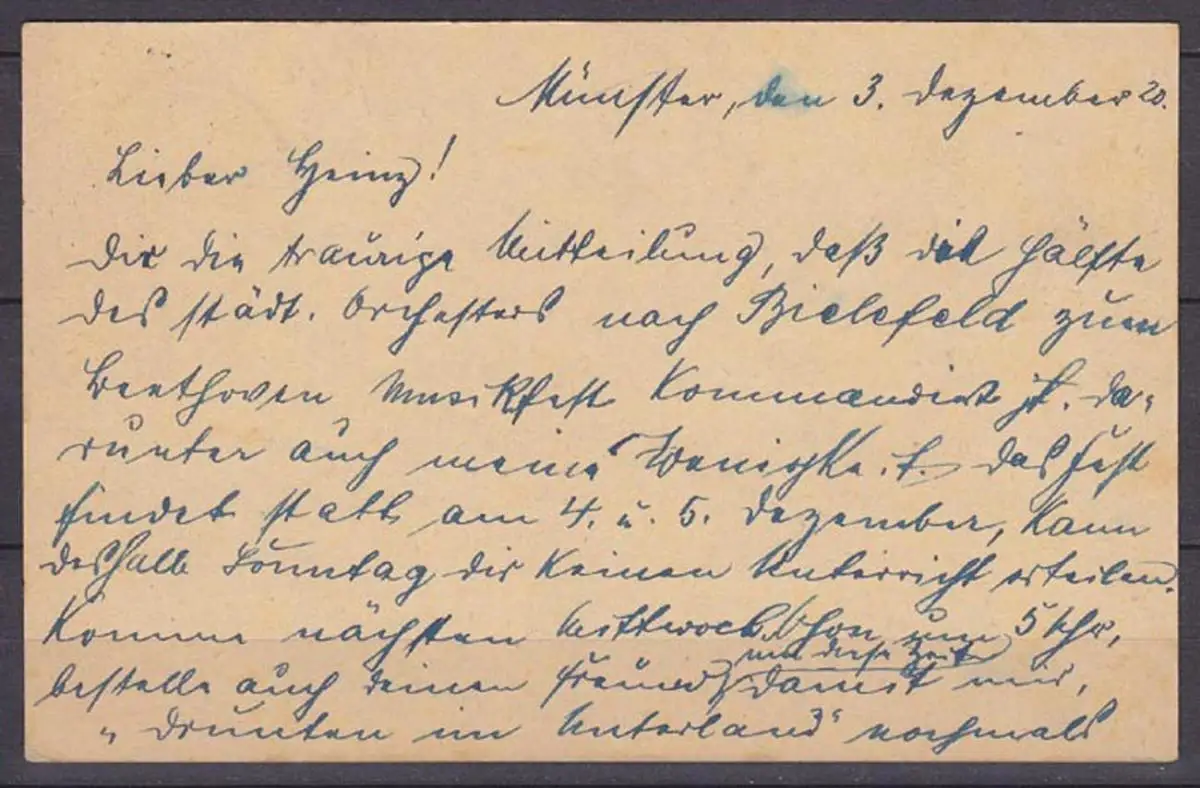 Münster, den 3. Dezember 20.
Lieber Heinz!
Dir die traurige Mitteilung, daß die Hälfte
des städt. Orchesters nach Bielefeld zum
Beethoven Musikfest Kommandiert ist. Da-
runter auch meine . Das Fest
findet statt am 4. u. 5. Dezember, Kann
deshalb Sonntag dir Keinen Unterricht erteilen.
Komme nächsten Mittwoch schon um 5 Uhr,
um diese Zeit
bestelle auch deinen Freund, damit wir,
„Drunten im Unterland" nochmals